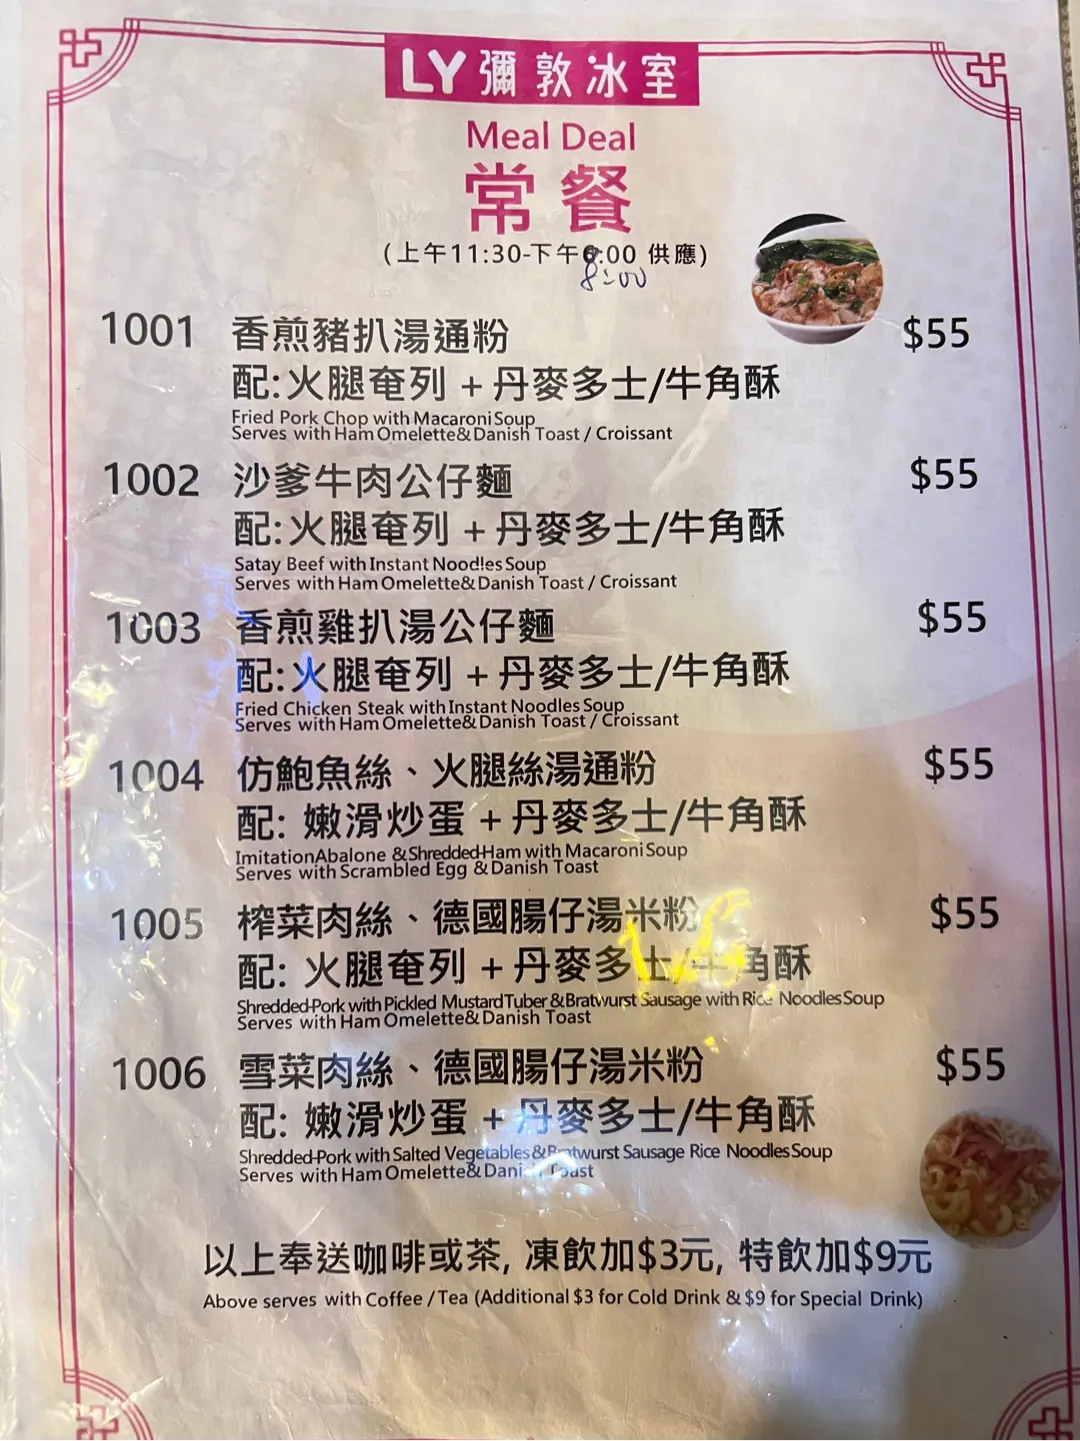 LY 彌敦冰室
Meal Deal
常餐
(上午11:30-下午6:00 供應)
8:00
1001 香煎豬扒湯通粉 $55
配:火腿奄列 + 丹麥多士/牛角酥
Fried Pork Chop with Macaroni Soup
Serves with Ham Omelette& Danish Toast / Croissant
1002 沙爹牛肉公仔麵 $55
配:火腿奄列 + 丹麥多士/牛角酥
Satay Beef with Instant Noodles Soup
Serves with Ham Omelette& Danish Toast / Croissant
1003 香煎雞扒湯公仔麵 $55
配:火腿奄列 + 丹麥多士/牛角酥
Fried Chicken Steak with Instant Noodles Soup
Serves with Ham Omelette& Danish Toast / Croissant
1004 仿鮑魚絲、火腿絲湯通粉 $55
配: 嫩滑炒蛋 + 丹麥多士/牛角酥
Imitation Abalone & Shredded-Ham with Macaroni Soup
Serves with Scrambled Egg & Danish Toast
1005 榨菜肉絲、德國腸仔湯米粉 $55
配: 火腿奄列 + 丹麥多士/牛角酥
Shredded-Pork with Pickled Mustard Tuber & Bratwurst Sausage with Rice Noodles Soup
Serves with Ham Omelette& Danish Toast
1006 雪菜肉絲、德國腸仔湯米粉 $55
配: 嫩滑炒蛋 + 丹麥多士/牛角酥
Shredded-Pork with Salted Vegetables & Bratwurst Sausage Rice Noodles Soup
Serves with Ham Omelette& Danish Toast
以上奉送咖啡或茶, 凍飲加$3元, 特飲加$9元
Above serves with Coffee / Tea (Additional $3 for Cold Drink & $9 for Special Drink)